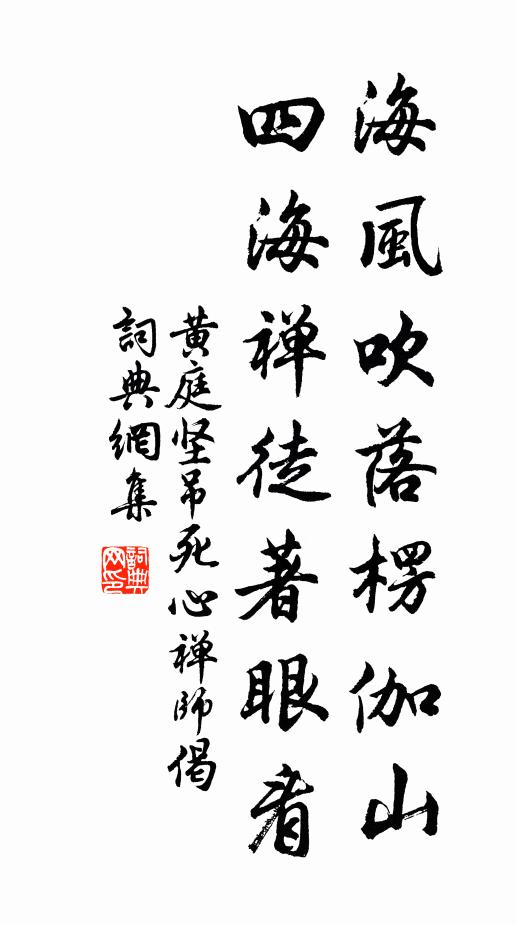 海風吹落楞伽山
四海禅徒著眼看
黄庭坚吊死心禅師偈
詞典網集
詞典网印